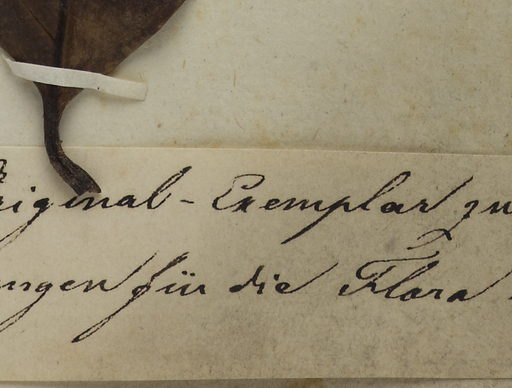 Original-Exemplar zu
ungen für die Flora